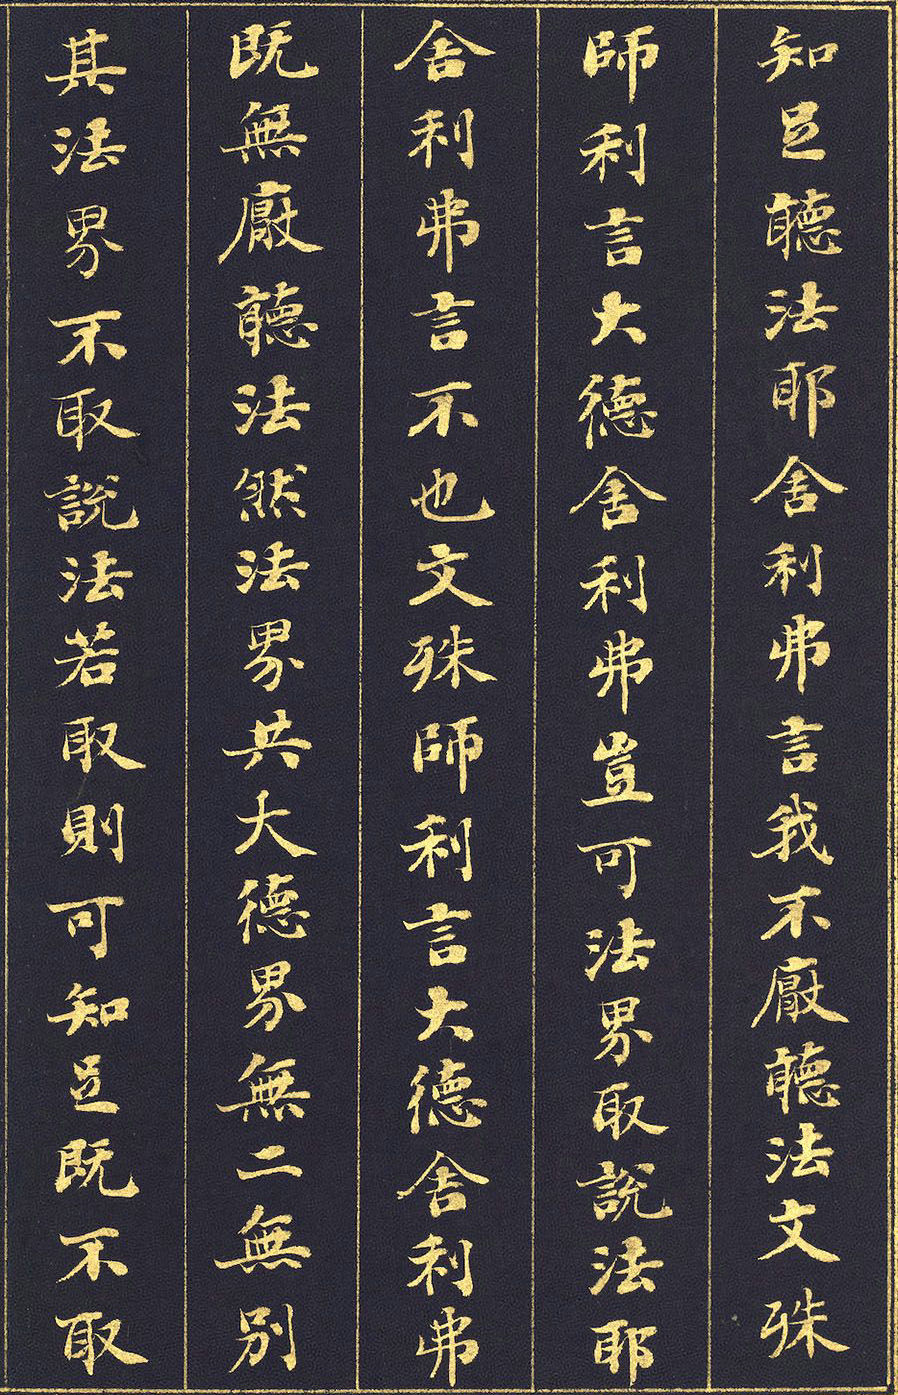 知足聽法耶舍利弗言我不厭聽法文殊
師利言大德舍利弗豈可法界取說法耶
舍利弗言不也文殊師利言大德舍利弗
既無厭聽法然法界共大德界無二無別
其法界不取說法若取則可知足既不取